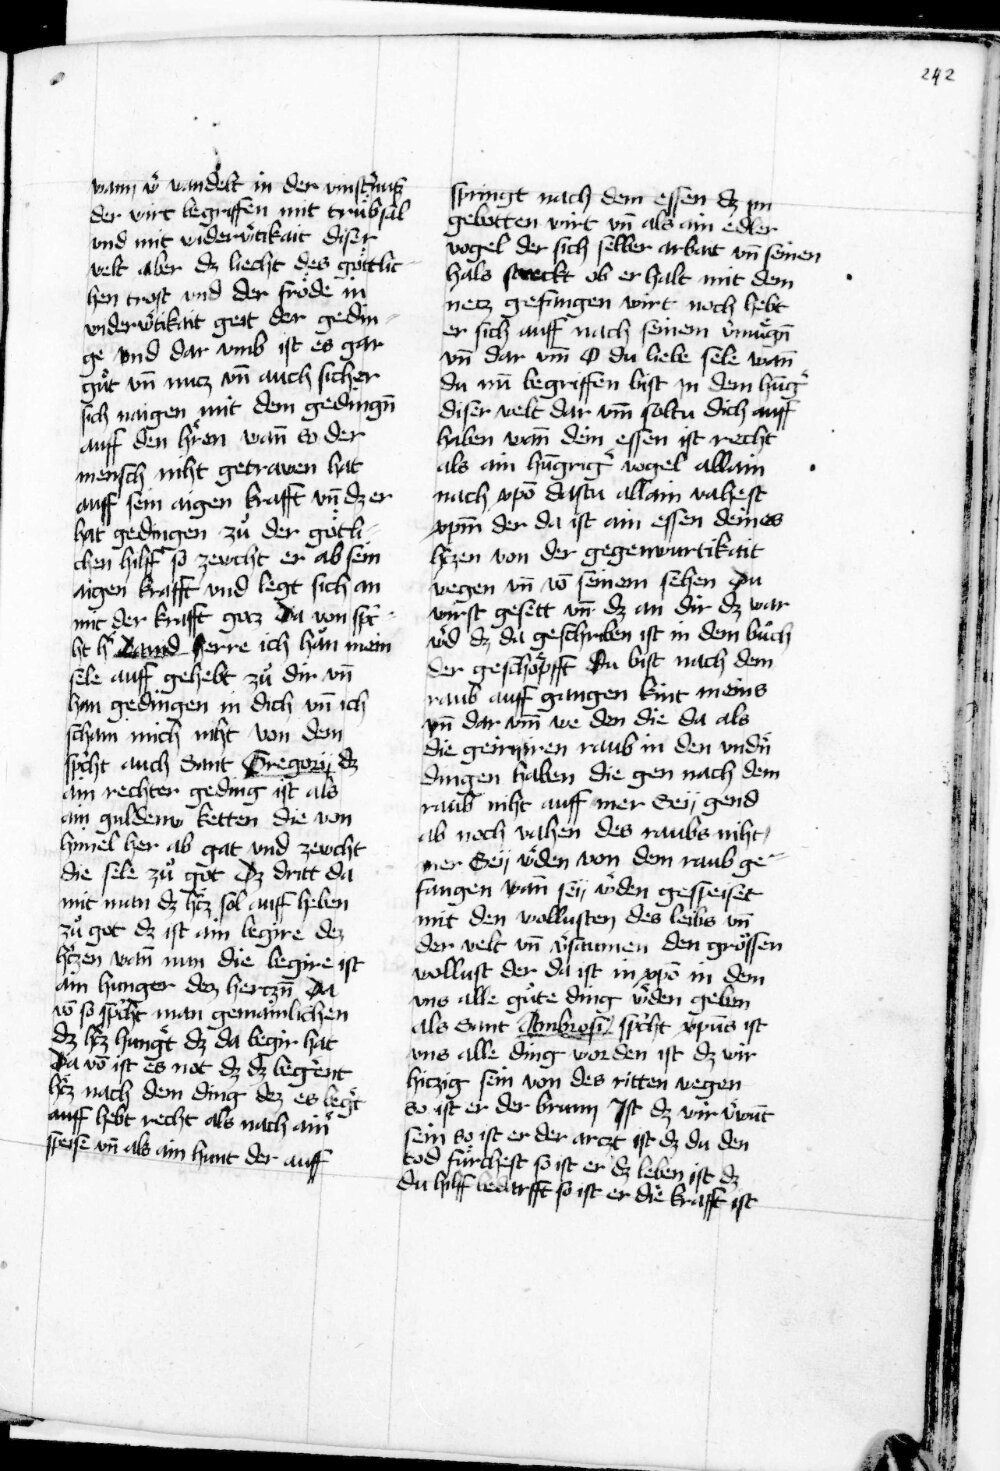 242
wann w̾ wandelt in der vinst̾nuß
der wirt begriffen mit trübsal
vnd mit widerw̾tikait diser
welt aber dz liecht des göttlic
hen trost vnd der fröde in
widerw̾tikait geit der gedin-
ge vnd dar vmb ist es gar
gůt vn̄ nucz vn̄ auch sicher
sich naigen mit dem gedingn̄
auff den h̾ren wan̄ so der
mensch niht getrawen hat
auff sein aigen krafft vn̄ dz er
hat gedingen zů der götli-
chen hilff so zewcht er ab sein
aigen krafft vnd legt sich an
mit der krafft gocz Da von sp̾c-
ht h̾ Dauid herre ich han mein
sele auff gehebt zů dir vn̄
han gedingen in dich vn̄ ich
scham mich niht von dem
sp̾cht auch Sant Gregorij dz
ain rechter geding ist als
ain guldenw ketten die von
himel her ab gat vnd zewcht
die sele zů got Dz dritt da
mit man dz h̾cz sol auff heben
zů got dz ist ain begire dez
h̾czen wan̄ nun die begire ist
ain hunger dez herczn̄ Da
vō so sp̾cht man gemainlichen
dz h̾cz hung̾t dz da begir hat
Da vō ist es not dz dz beger̾nt
h̾cz nach dem ding dez es beg̾t
auff hebt recht als nach ain̾
speise vn̄ als ain hunt der auff
springt nach dem essen dz im
gebotten wirt vn̄ als ain edler
vogel der sich selber arbait vn̄ seinen
hals streckt ob er halt mit dem
necz gefangen wirt noch hebt
er sich auff nach seinem v̾mügn̄
vn̄ dar vm̄ O du liebe sele wan̄
du nū begriffen bist in dem hūg̾
diser welt dar vm̄ soltu dich auff
haben wan̄ dein essen ist recht
als ain hūgrig̾ vogel allain
nach xpō dastu allain vahest
xpm̄ der da ist ain essen deines
h̾czen von der gegenwurtikait
wegen vn̄ vō seinem sehen Du
wirst gesett vn̄ dz an dir dz war
w̾d dz da geschriben ist in dem bůch
der geschöpfft Du bist nach dem
raub auff gangen kint meins
vn̄ dar vm̄ we den die da als
die geir iren raub in den vnd̾n
dingen haben die gen nach dem
raub niht auff mer Seij gend
ab noch vahen des raubs niht
mer Seij w̾den von dem raub ge-
fangen wan̄ seij w̾den gesseiset
mit den wollusten des leibs vn̄
der welt vn̄ v̾saumen den grössen
wollust der da ist in xpō in dem
vns alle gůte ding w̾den geben
als Sant Ambrosi sp̾cht xpūs ist
vns alle ding worden ist dz wir
hiczig sein von des ritten wegen
so ist er der brunn Ist dz wir v̾wūt
sein so ist er der arczt ist dz du den
tod fürchest so ist er dz leben ist dz
du hilff bedarfft so ist er die krafft ist